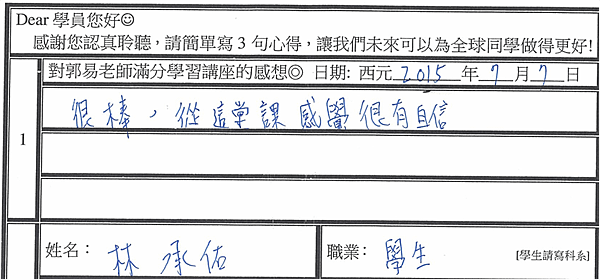 Dear 學員您好☺
感謝您認真聆聽，請簡單寫 3 句心得，讓我們未來可以為全球同學做得更好!
對郭易老師滿分學習講座的感想◎ 日期: 西元 2015 年 7 月 7 日
1
很棒，從這堂課感覺很有自信
姓名： 林承佑 職業： 學生 [學生請寫科系]